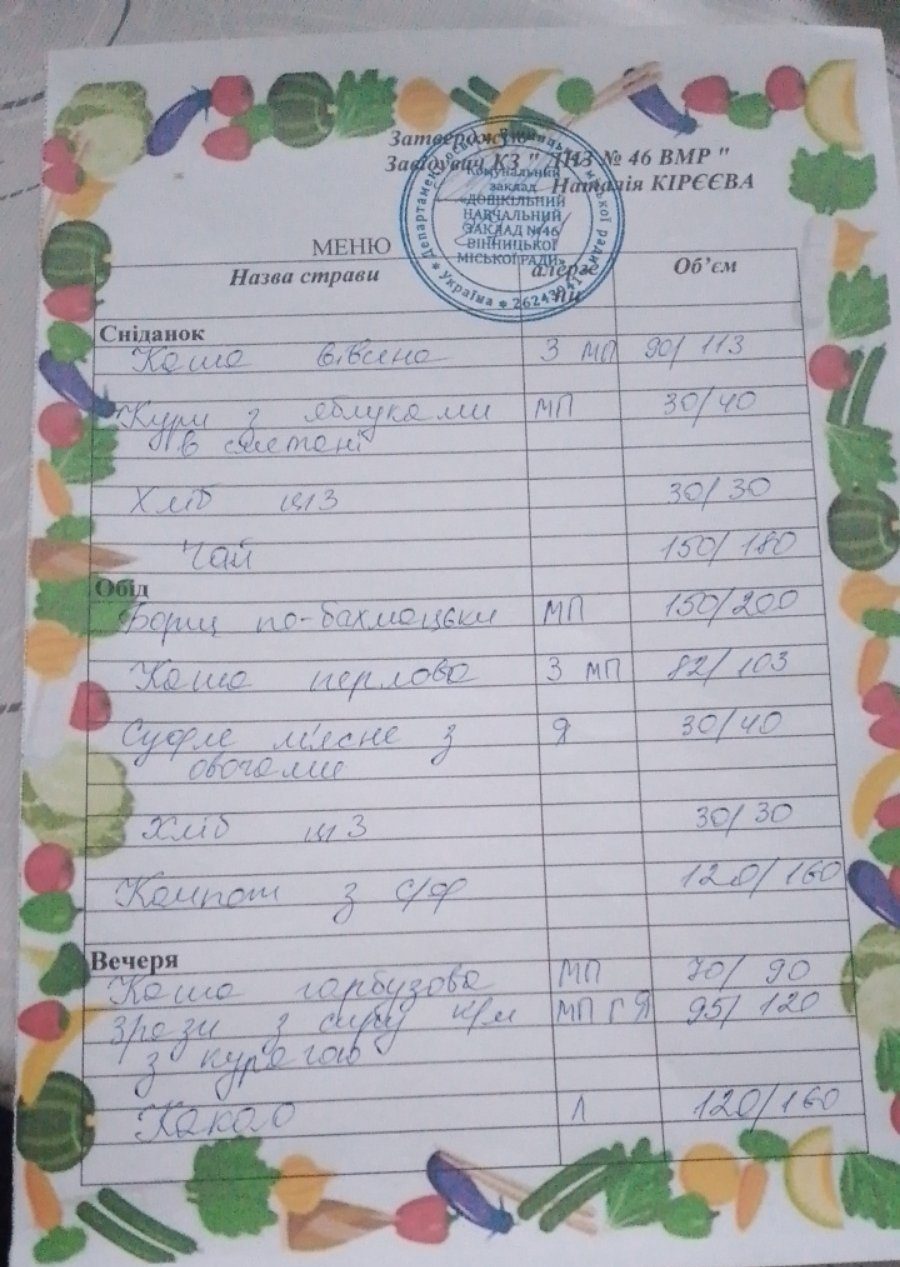 Затверджую
Завідувач КЗ " ДНЗ № 46 ВМР "
Наталія КІРЄЄВА
Комунальний
заклад
«ДОШКІЛЬНИЙ
НАВЧАЛЬНИЙ
ЗАКЛАД №46
ВІННИЦЬКОЇ
МІСЬКОЇ РАДИ»
Україна * 26243041
МЕНЮ
Назва страви алерге Об’єм
ни
Сніданок
Каша вівсяна З МП 90/ 113
Кури з яблуками МП 30/40
в сметані
Хліб ц/з 30/ 30
Чай 150/ 180
Обід
Борщ по-бахмацьки МП 150/200
Каша перлова З МП 82/ 103
Суфле м'ясне з Я 30/40
овочами
Хліб ц/з 30/ 30
Компот з с/ф 120/ 160
Вечеря
Каша гарбузова МП 70/ 90
Зрази з сиру к/м МП Г Я 95/ 120
з курагою
Какао Л 120/160